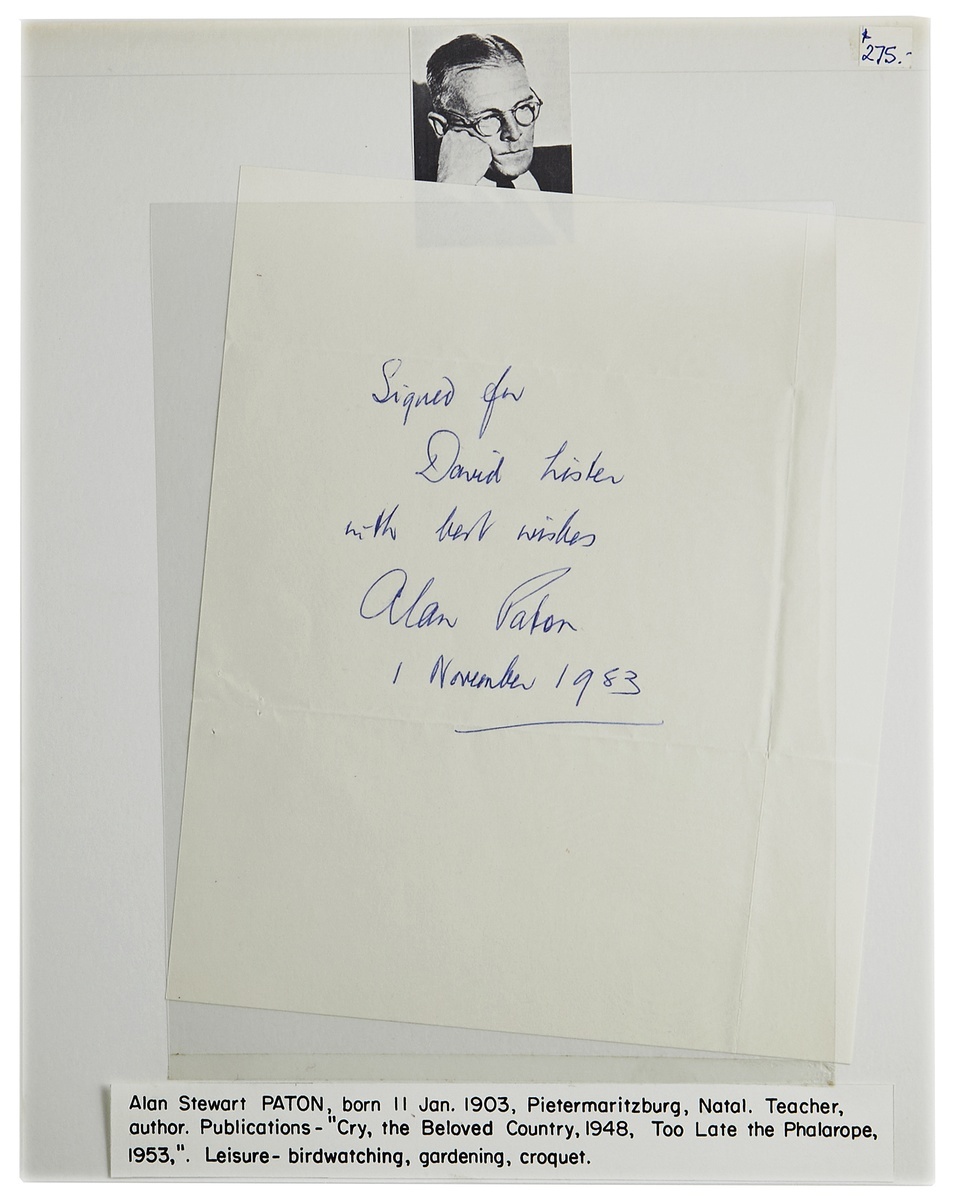 275.-
Signed for
David Lister
with best wishes
Alan Paton
1 November 1983
Alan Stewart PATON, born 11 Jan. 1903, Pietermaritzburg, Natal. Teacher,
author. Publications - "Cry, the Beloved Country, 1948, Too Late the Phalarope,
1953,". Leisure - birdwatching, gardening, croquet.